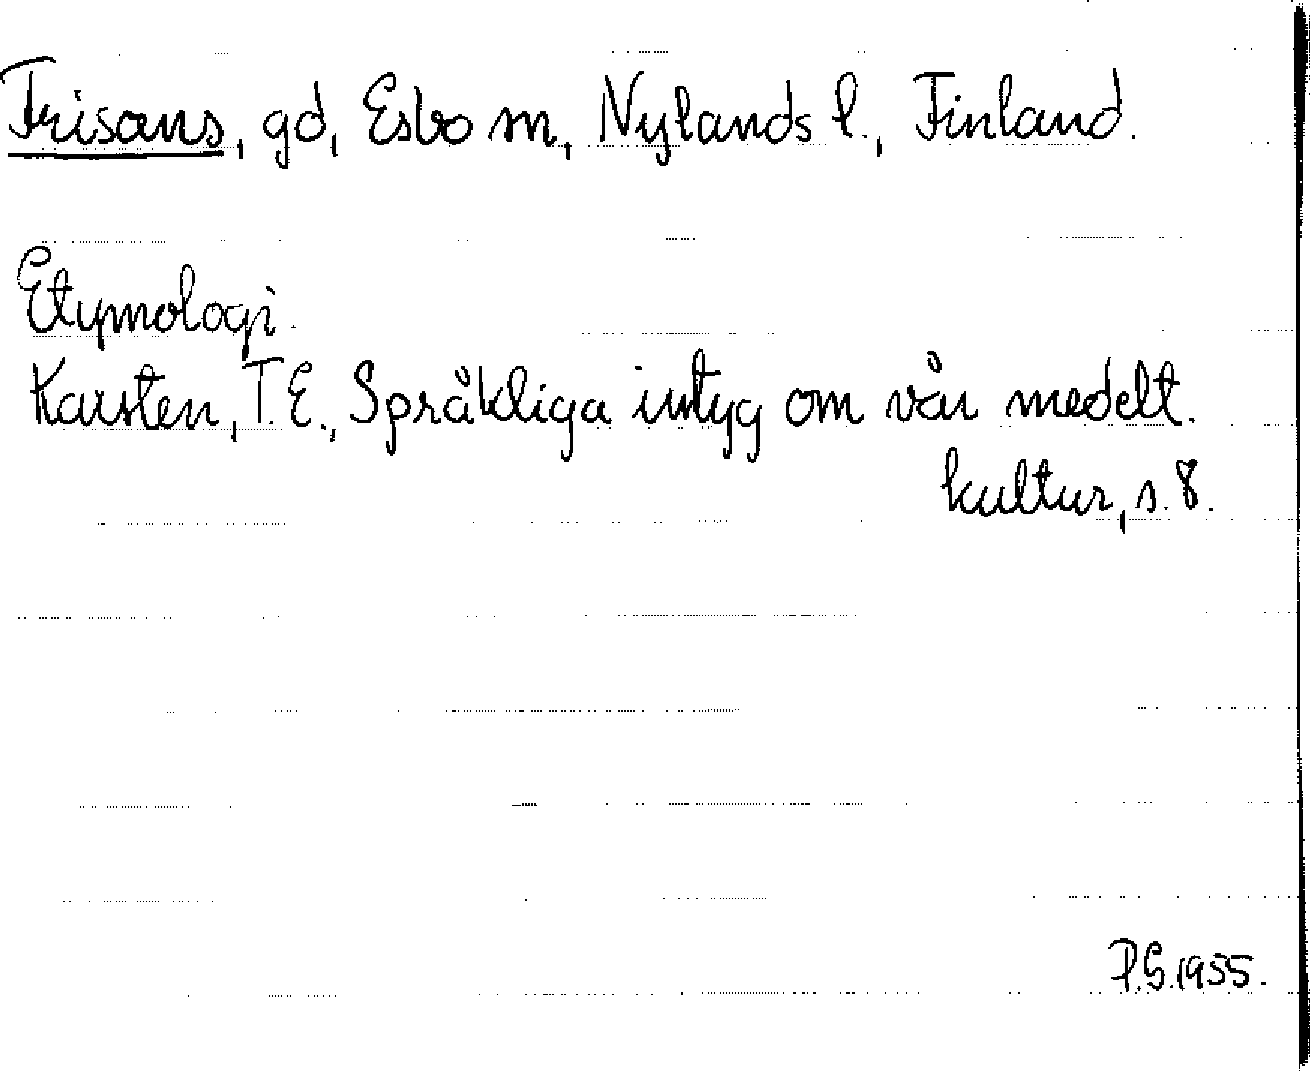 Frisans, gd, Esbo sn, Nylands l., Finland.
Etymologi.
Karsten, T.E., Språkliga intyg om vår medelt.
kultur, s. 8.
P.S. 1955.